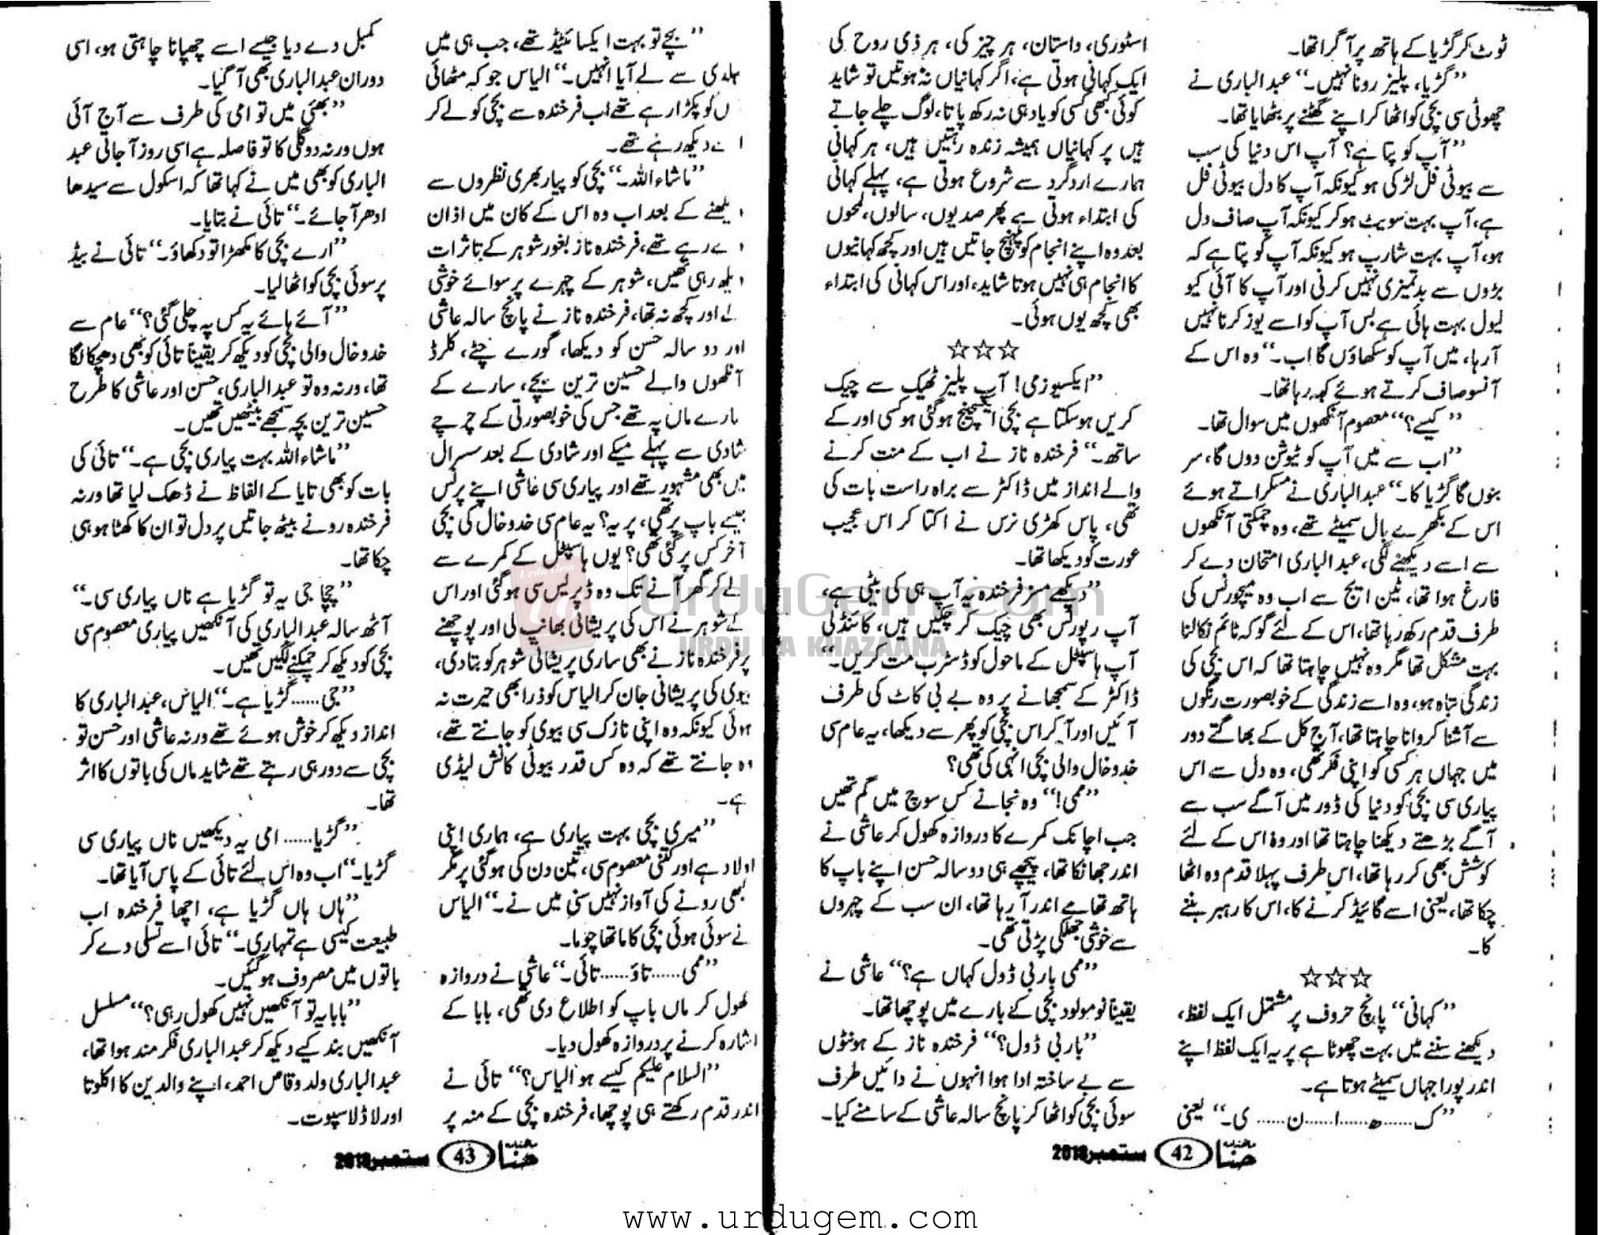 ٹوٹ کر گڑیا کے ہاتھ پر آ گرا تھا۔
”گڑیا، پلیز رونا نہیں۔“ عبدالباری نے
چھوٹی سی بچی کو اٹھا کر اپنے گھٹنے پر بٹھایا تھا۔
”آپ کو پتا ہے؟ آپ اس دنیا کی سب
سے بیوٹی فل لڑکی ہو کیونکہ آپ کا دل بیوٹی فل
ہے، آپ بہت سویٹ ہو کیونکہ آپ صاف دل
ہو، آپ بہت شارپ ہو کیونکہ آپ کو پتا ہے کہ
بڑوں سے بدتمیزی نہیں کرنی اور آپ کا آئی کیو
لیول بہت ہائی ہے بس آپ کو اسے یوز کرنا نہیں
آ رہا، میں آپ کو سکھاؤں گا اب۔“ وہ اس کے
آنسو صاف کرتے ہوئے کہہ رہا تھا۔
”کیسے؟“ معصوم آنکھوں میں سوال تھا۔
”اب سے میں آپ کو ٹیوشن دوں گا، سر
بنوں گا گڑیا کا۔“ عبدالباری نے مسکراتے ہوئے
اس کے بکھرے بال سمیٹے تھے، وہ چمکتی آنکھوں
سے اسے دیکھنے لگی، عبدالباری امتحان دے کر
فارغ ہوا تھا، ٹین ایج سے اب وہ میچورٹی کی
طرف قدم رکھ رہا تھا، اس کے لئے گو کہ ٹائم نکالنا
بہت مشکل تھا مگر وہ نہیں چاہتا تھا کہ اس بچی کی
زندگی تباہ ہو، وہ اسے زندگی کے خوبصورت رنگوں
سے آشنا کروانا چاہتا تھا، آج کل کے بھاگتے دور
میں جہاں ہر کسی کو اپنی فکر تھی، وہ دل سے اس
پیاری سی بچی کو دنیا کی ڈور میں آگے سب سے
آگے بڑھتے دیکھنا چاہتا تھا اور وہ اس کے لئے
کوشش بھی کر رہا تھا، اس طرف پہلا قدم وہ اٹھا
چکا تھا، یعنی اسے گائیڈ کرنے کا، اس کا رہبر بننے
کا۔
☆☆☆
”کہانی“ پانچ حروف پر مشتمل ایک لفظ،
دیکھنے سننے میں بہت چھوٹا ہے پر یہ ایک لفظ اپنے
اندر پورا جہاں سمیٹے ہوتا ہے۔
”ک......ھ......ا......ن......ی۔“ یعنی
اسٹوری، داستان، ہر چیز کی، ہر ذی روح کی
ایک کہانی ہوتی ہے، اگر کہانیاں نہ ہوتیں تو شاید
کوئی بھی کسی کو یاد ہی نہ رکھ پاتا، لوگ چلے جاتے
ہیں پر کہانیاں ہمیشہ زندہ رہتیں ہیں، ہر کہانی
ہمارے ارد گرد سے شروع ہوتی ہے، پہلے کہانی
کی ابتداء ہوتی ہے پھر صدیوں، سالوں، لمحوں
بعد وہ اپنے انجام کو پہنچ جاتیں ہیں اور کچھ کہانیوں
کا انجام ہی نہیں ہوتا شاید، اور اس کہانی کی ابتداء
بھی کچھ یوں ہوئی۔
☆☆☆
”ایکسیوزمی! آپ پلیز ٹھیک سے چیک
کریں ہو سکتا ہے بچی ایکسچینج ہو گئی ہو کسی اور کے
ساتھ۔“ فرخندہ ناز نے اب کے منت کرنے
والے انداز میں ڈاکٹر سے براہ راست بات کی
تھی، پاس کھڑی نرس نے اکتا کر اس عجیب
عورت کو دیکھا تھا۔
”دیکھے مسز فرخندہ یہ آپ ہی کی بیٹی ہے،
آپ رپورٹس بھی چیک کر چکیں ہیں، کائنڈلی
آپ ہاسپٹل کے ماحول کو ڈسٹرب مت کریں۔“
ڈاکٹر کے سمجھانے پر وہ بے بی کاٹ کی طرف
آئیں اور آ کر اس بچی کو پھر سے دیکھا، یہ عام سی
خدوخال والی بچی انہی کی تھی؟
”ممی!“ وہ نجانے کس سوچ میں گم تھیں
جب اچانک کمرے کا دروازہ کھول کر عاشی نے
اندر جھانکا تھا، پیچھے ہی دو سالہ حسن اپنے باپ کا
ہاتھ تھامے اندر آ رہا تھا، ان سب کے چہروں
سے خوشی جھلکی پڑتی تھی۔
”ممی باربی ڈول کہاں ہے؟“ عاشی نے
یقیناً نومولود بچی کے بارے میں پوچھا تھا۔
”باربی ڈول؟“ فرخندہ ناز کے ہونٹوں
سے بے ساختہ ادا ہوا انہوں نے دائیں طرف
سوئی بچی کو اٹھا کر پانچ سالہ عاشی کے سامنے کیا۔
ماہنامہ حنا 42 ستمبر 2018
”بچے تو بہت ایکسائیٹڈ تھے، جب ہی میں
جلدی سے لے آیا انہیں۔“ الیاس جو کہ مٹھائی
کو پکڑا رہے تھے اب فرخندہ سے بچی کو لے کر
دیکھ رہے تھے۔
”ماشاء اللہ۔“ بچی کو پیار بھری نظروں سے
دیکھنے کے بعد اب وہ اس کے کان میں اذان
دے رہے تھے، فرخندہ ناز بغور شوہر کے تاثرات
دیکھ رہی تھیں، شوہر کے چہرے پر سوائے خوشی
کے اور کچھ نہ تھا، فرخندہ ناز نے پانچ سالہ عاشی
اور دو سالہ حسن کو دیکھا، گورے چٹے، کلرڈ
آنکھوں والے حسین ترین بچے، سارے کے
سارے ماں پہ تھے جس کی خوبصورتی کے چرچے
شادی سے پہلے میکے اور شادی کے بعد سسرال
میں بھی مشہور تھے اور پیاری سی عاشی اپنے پرنس
جیسے باپ پر تھی، پر یہ؟ یہ عام سی خدوخال کی بچی
آخر کس پر گئی تھی؟ یوں ہاسپٹل کے کمرے سے
لے کر گھر آنے تک وہ ڈپریس سی ہو گئی اور اس
کے شوہر نے اس کی پریشانی بھانپ لی اور پوچھنے
پر فرخندہ ناز نے بھی ساری پریشانی شوہر کو بتا دی،
بیوی کی پریشانی جان کر الیاس کو ذرا بھی حیرت نہ
ہوئی کیونکہ وہ اپنی نازک سی بیوی کو جانتے تھے،
وہ جانتے تھے کہ وہ کس قدر بیوٹی کانش لیڈی
ہے۔
”میری بچی بہت پیاری ہے، ہماری اپنی
اولاد ہے اور کتنی معصوم سی، تین دن کی ہو گئی پر مگر
کبھی رونے کی آواز نہیں سنی میں نے۔“ الیاس
نے سوئی ہوئی بچی کا ماتھا چوما۔
”ممی......تاؤ......تائی۔“ عاشی نے دروازہ
کھول کر ماں باپ کو اطلاع دی تھی، بابا کے
اشارہ کرنے پر دروازہ کھول دیا۔
”السلام علیکم کیسے ہو الیاس؟“ تائی نے
اندر قدم رکھتے ہی پوچھا، فرخندہ بچی کے منہ پر
کمبل دے دیا جیسے اسے چھپانا چاہتی ہو، اسی
دوران عبدالباری بھی آ گیا۔
”بھئی میں تو امی کی طرف سے آج آئی
ہوں ورنہ دو گلی کا تو فاصلہ ہے اسی روز آ جاتی عبد
الباری کو بھی میں نے کہا تھا کہ اسکول سے سیدھا
ادھر آ جائے۔“ تائی نے بتایا۔
”ارے بچی کا مکھڑا تو دکھاؤ۔“ تائی نے بیڈ
پر سوئی بچی کو اٹھا لیا۔
”آئے ہائے یہ کس پہ چلی گئی؟“ عام سے
خدوخال والی بچی کو دیکھ کر یقیناً تائی کو بھی دھچکا لگا
تھا، ورنہ وہ تو عبدالباری، حسن اور عاشی کا طرح
حسین ترین بچہ سمجھے بیٹھیں تھیں۔
”ماشاء اللہ بہت پیاری بچی ہے۔“ تائی کی
بات کو بھی تایا کے الفاظ نے ڈھک لیا تھا ورنہ
فرخندہ رونے بیٹھ جاتیں پر دل تو ان کا کھٹا ہو ہی
چکا تھا۔
”چچا جی یہ تو گڑیا ہے ناں پیاری سی۔“
آٹھ سالہ عبدالباری کی آنکھیں پیاری معصوم سی
بچی کو دیکھ کر چمکنے لگیں تھیں۔
”جی......گڑیا ہے۔“ الیاس، عبدالباری کا
انداز دیکھ کر خوش ہوئے تھے ورنہ عاشی اور حسن تو
بچی سے دور ہی رہتے تھے شاید ماں کی باتوں کا اثر
تھا۔
”گڑیا......امی یہ دیکھیں ناں پیاری سی
گڑیا۔“ اب وہ اس لئے تائی کے پاس آیا تھا۔
”ہاں ہاں گڑیا ہے، اچھا فرخندہ اب
طبیعت کیسی ہے تمہاری۔“ تائی اسے تسلی دے کر
باتوں میں مصروف ہو گئیں۔
”بابا یہ تو آنکھیں نہیں کھول رہی؟“ مسلسل
آنکھیں بند کیے دیکھ کر عبدالباری فکر مند ہوا تھا،
عبدالباری ولد وقاص احمد، اپنے والدین کا اکلوتا
اور لاڈلا سپوت۔
ماہنامہ حنا 43 ستمبر 2018
UrduGem.com
URDU KA KHAZAANA
www.urdugem.com